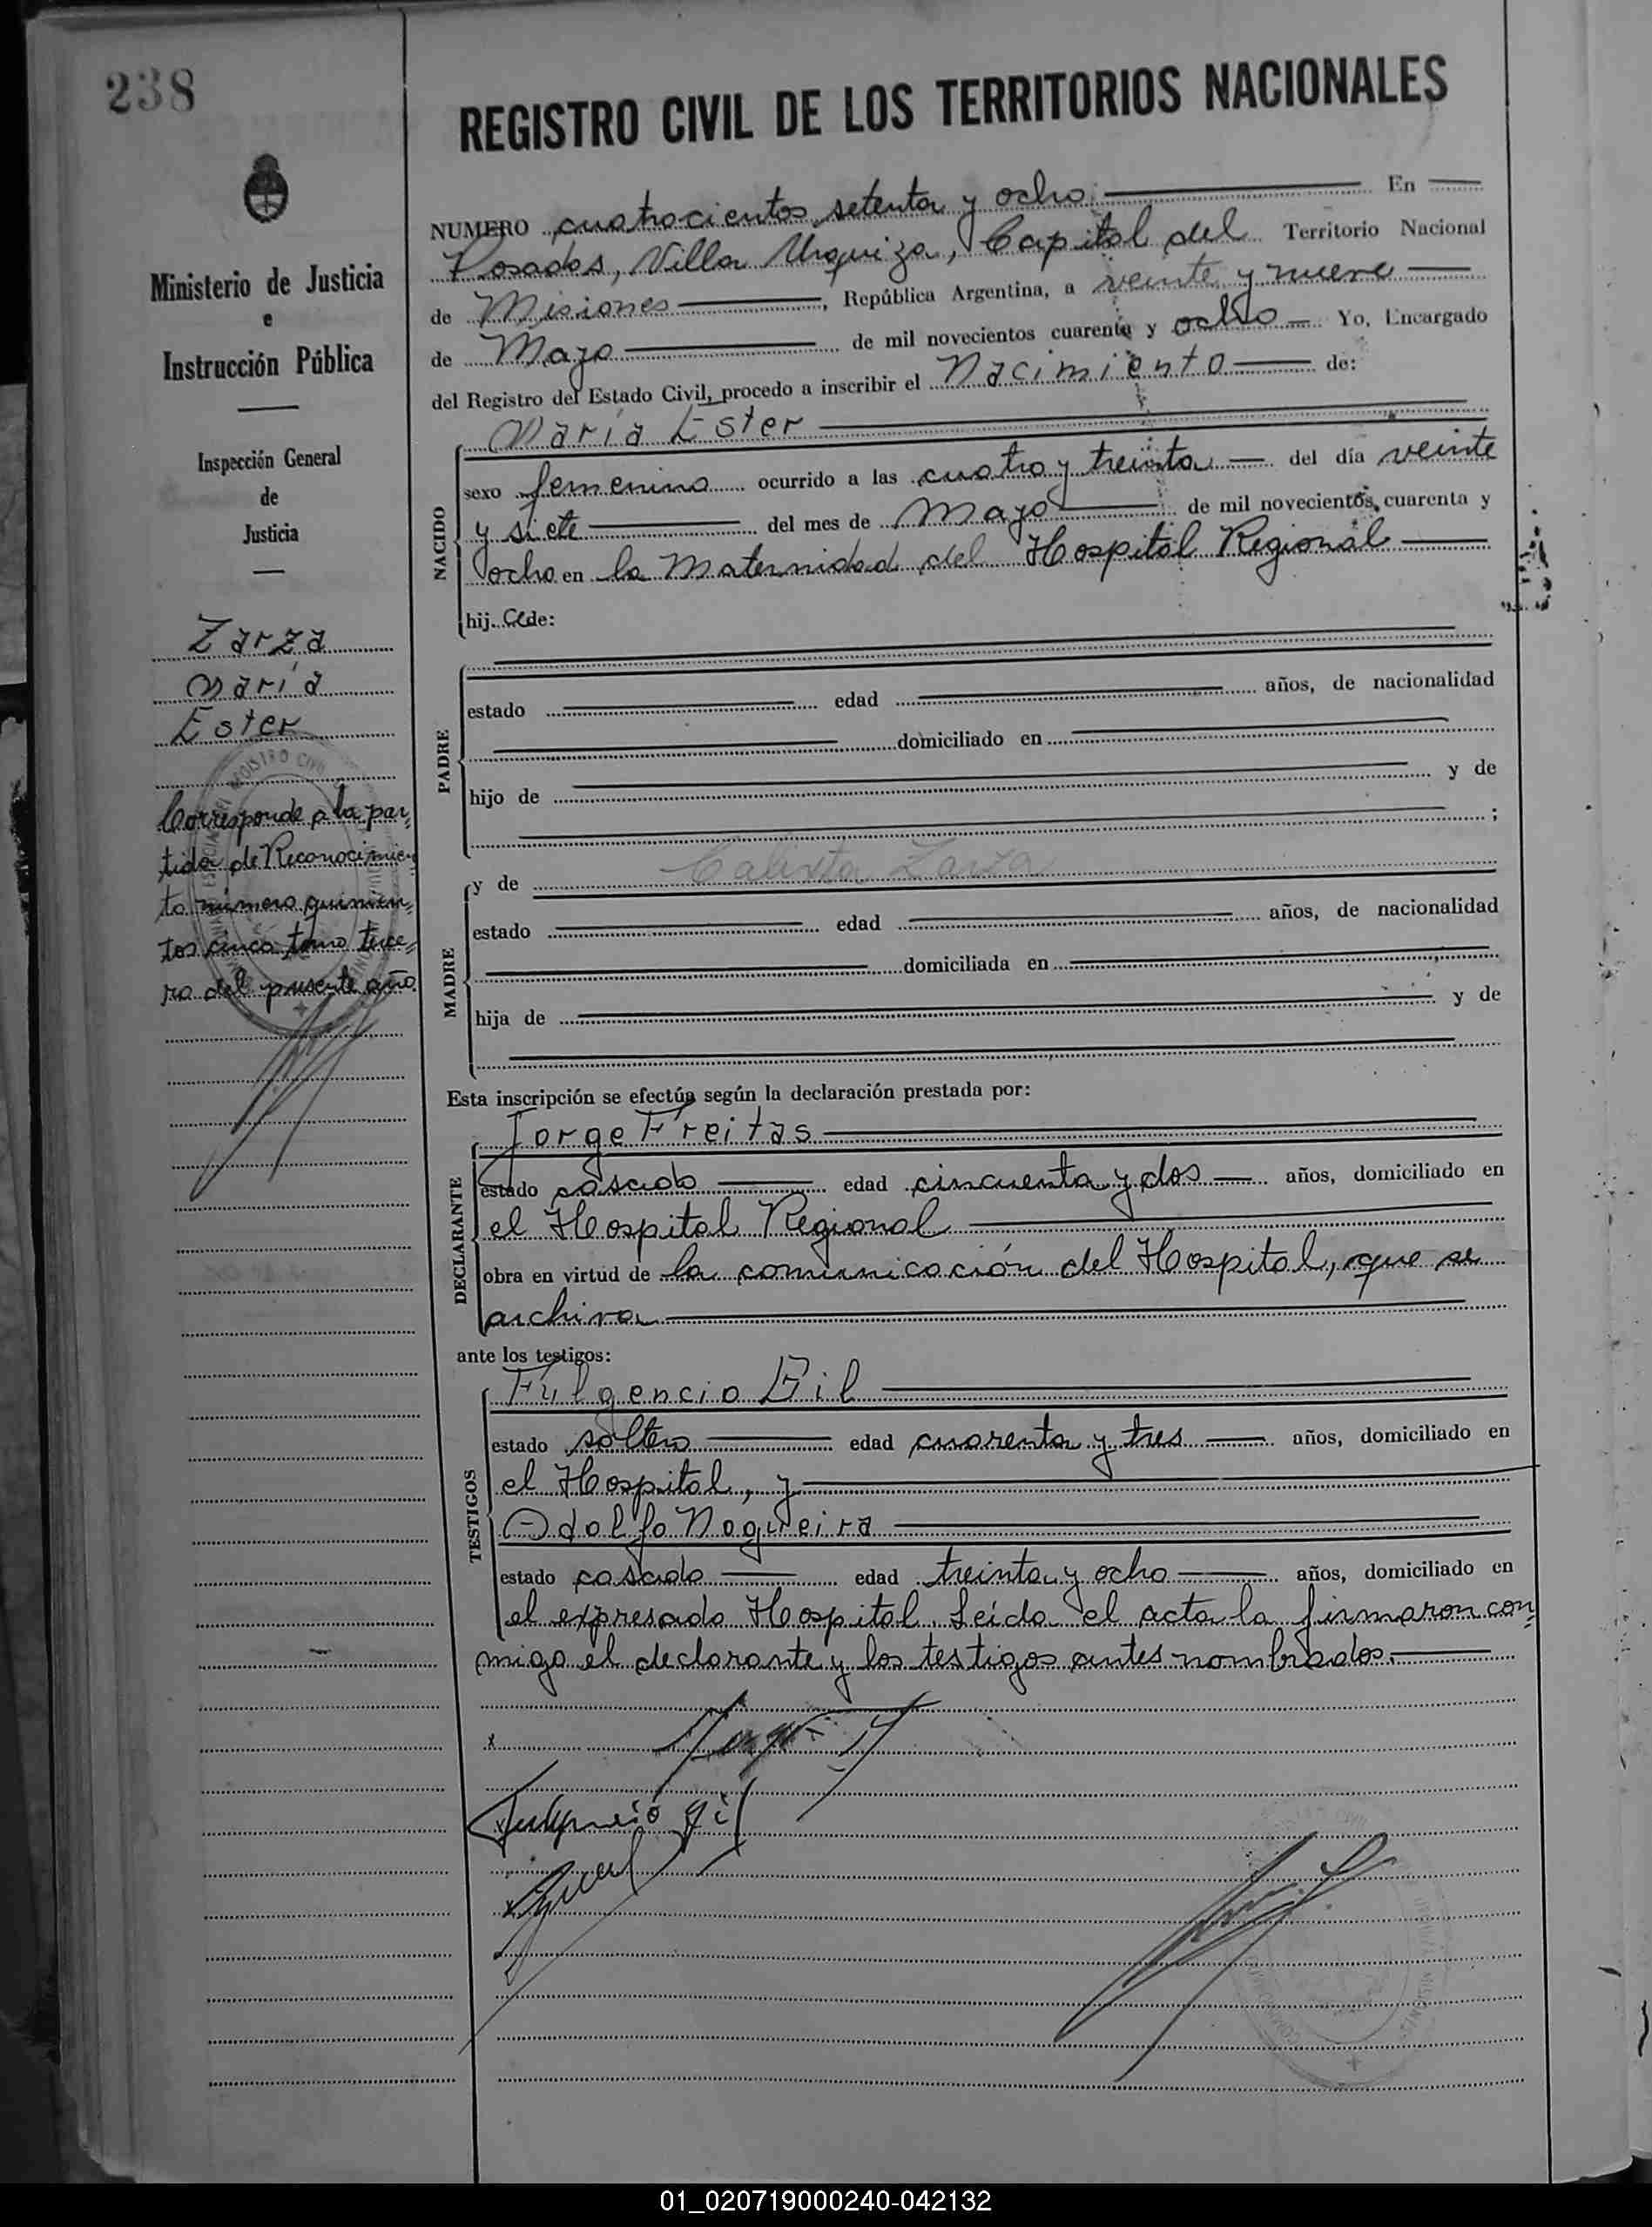 238
REGISTRO CIVIL DE LOS TERRITORIOS NACIONALES
NUMERO cuatrocientos setenta y ocho En
Posadas, Villa Urquiza, Capital del Territorio Nacional
de Misiones, República Argentina, a veinte y nueve
de Mayo de mil novecientos cuarenta y ocho Yo, Encargado
del Registro del Estado Civil, procedo a inscribir el Nacimiento de:
Ministerio de Justicia
e
Instrucción Pública
Inspección General
de
Justicia
Zarza
María
Ester
Corresponde a la par„
tida de Reconocimien„
to número quinien„
tos cinco tomo terce„
ro del presente año.
NACIDO
María Ester
sexo femenino ocurrido a las cuatro y treinta del día veinte
y siete del mes de Mayo de mil novecientos cuarenta y
ocho en la Maternidad del Hospital Regional
hij. a de:
PADRE
estado edad años, de nacionalidad
domiciliado en
hijo de y de
;
MADRE
y de Calixta Zarza
estado edad años, de nacionalidad
domiciliada en
hija de y de
Esta inscripción se efectúa según la declaración prestada por:
DECLARANTE
Jorge Freitas
estado casado edad cincuenta y dos años, domiciliado en
el Hospital Regional
obra en virtud de la comunicación del Hospital, que se
archiva
ante los testigos:
TESTIGOS
Fulgencio Gil
estado soltero edad cuarenta y tres años, domiciliado en
el Hospital, y
Adolfo Nogueira
estado casado edad treinta y ocho años, domiciliado en
el expresado Hospital. Leída el acta la firmaron con„
migo el declarante y los testigos antes nombrados.
Fulgencio Gil
01_020719000240-042132